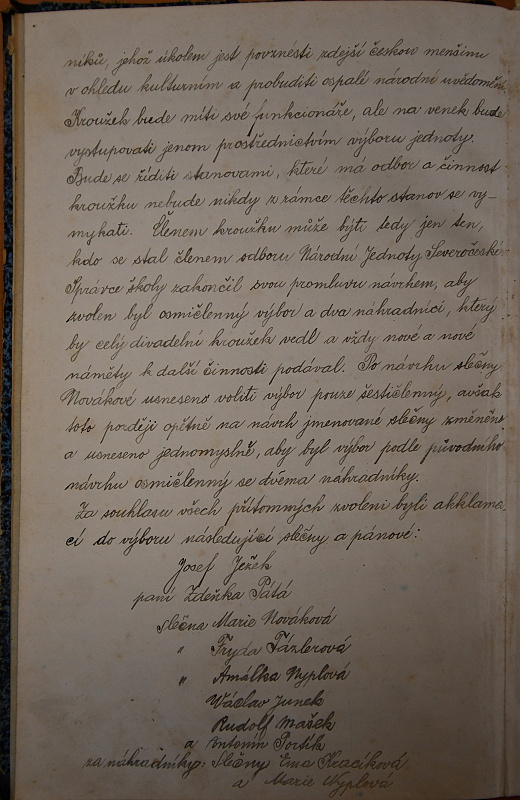 níků, jehož úkolem jest povznésti zdejší českou menšinu
v ohledu kulturním a probuditi ospalé národní uvědomění.
Kroužek bude míti své funkcionáře, ale na venek bude
vystupovati jenom prostřednictvím výboru jednoty.
Bude se říditi stanovami, které má odbor a činnost
kroužku nebude nikdy z rámce těchto stanov se vy-
mykati. Členem kroužku může býti tedy jen ten,
kdo se stal členem odboru Národní Jednoty Severočeské.
Správce školy zakončil svou promluvu návrhem, aby
zvolen byl osmičlenný výbor a dva náhradníci, který
by celý divadelní kroužek vedl a vždy nové a nové
náměty k další činnosti podával. Po návrhu slečny
Novákové usneseno voliti výbor pouze šestičlenný, avšak
toto později opětně na návrh jmenované slečny změněno
a usneseno jednomyslně, aby byl výbor podle původního
návrhu osmičlenný se dvěma náhradníky.
Za souhlasu všech přítomných zvoleni byli akklama-
cí do výboru následující slečny a pánové:
Josef Ježek
paní Zdeňka Pátá
Slečna Marie Nováková
" Fryda Fázlerová
" Amálka Nyplová
Václav Junek
Rudolf Mašek
a Antonín Portík
za náhradníky: Slečny Ema Kracíková
a Marie Nyplová